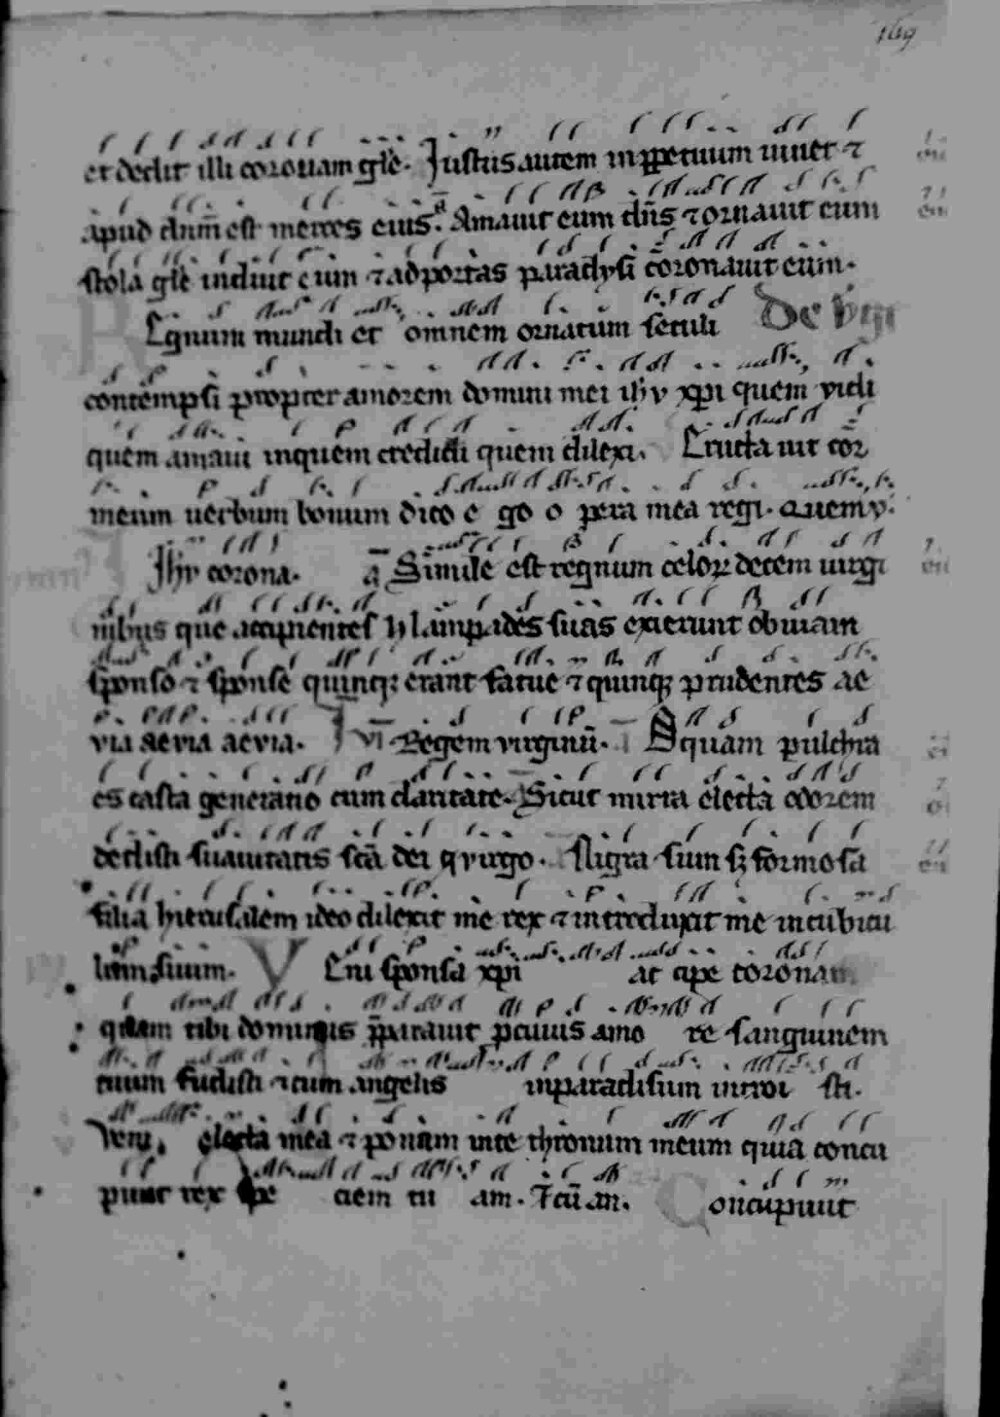 149
et dedit illi coronam glē. Justus autem inꝑpetuum uiuet ⁊
apud dnm̄ est merces eius. a Amauit eum dn̄s ⁊ ornauit eum
stola glē induit eum ⁊ adportas paradysi coronauit eum.
Regnum mundi et omnem ornatum seculi De vir
contempsi propter amorem domini mei ihv xp̄i quem vidi
quem amaui inquem credidi quem dilexi. Eructa uit cor
meum uerbum bonum dico e go o pera mea regi. Quem v.
Ihv corona. a Simile est regnum celoꝝ decem uirgi
nibus que accipientes lampades suas exierunt obuiam
sponso ⁊ sponse quinqꝫ erant fatue ⁊ quinqꝫ prudentes ae
via aevia aevia. Regem virginū. O quam pulchra
es casta generatio cum claritate. Sicut mirra electa odorem
dedisti suauitatis scā dei virgo. Nigra sum sꝫ formosa
filia hierusalem ideo dilexit me rex ⁊ introduxit me incubicu
lum suum. Veni sponsa xp̄i ac cipe coronam
quam tibi dominus p̄parauit pcuius amo re sanguinem
tuum fudisti ⁊ cum angelis inparadisum introi sti.
Veni electa mea ⁊ ponam inte thronum meum quia concu
piuit rex spe ciem tu am. Concupiuit